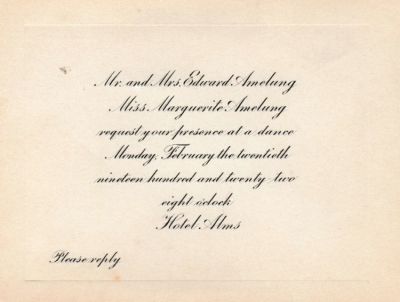 Mr. and Mrs. Edward Amelung
Miss Marguerite Amelung
request your presence at a dance
Monday, February the twentieth
nineteen hundred and twenty-two
eight o'clock
Hotel Alms
Please reply